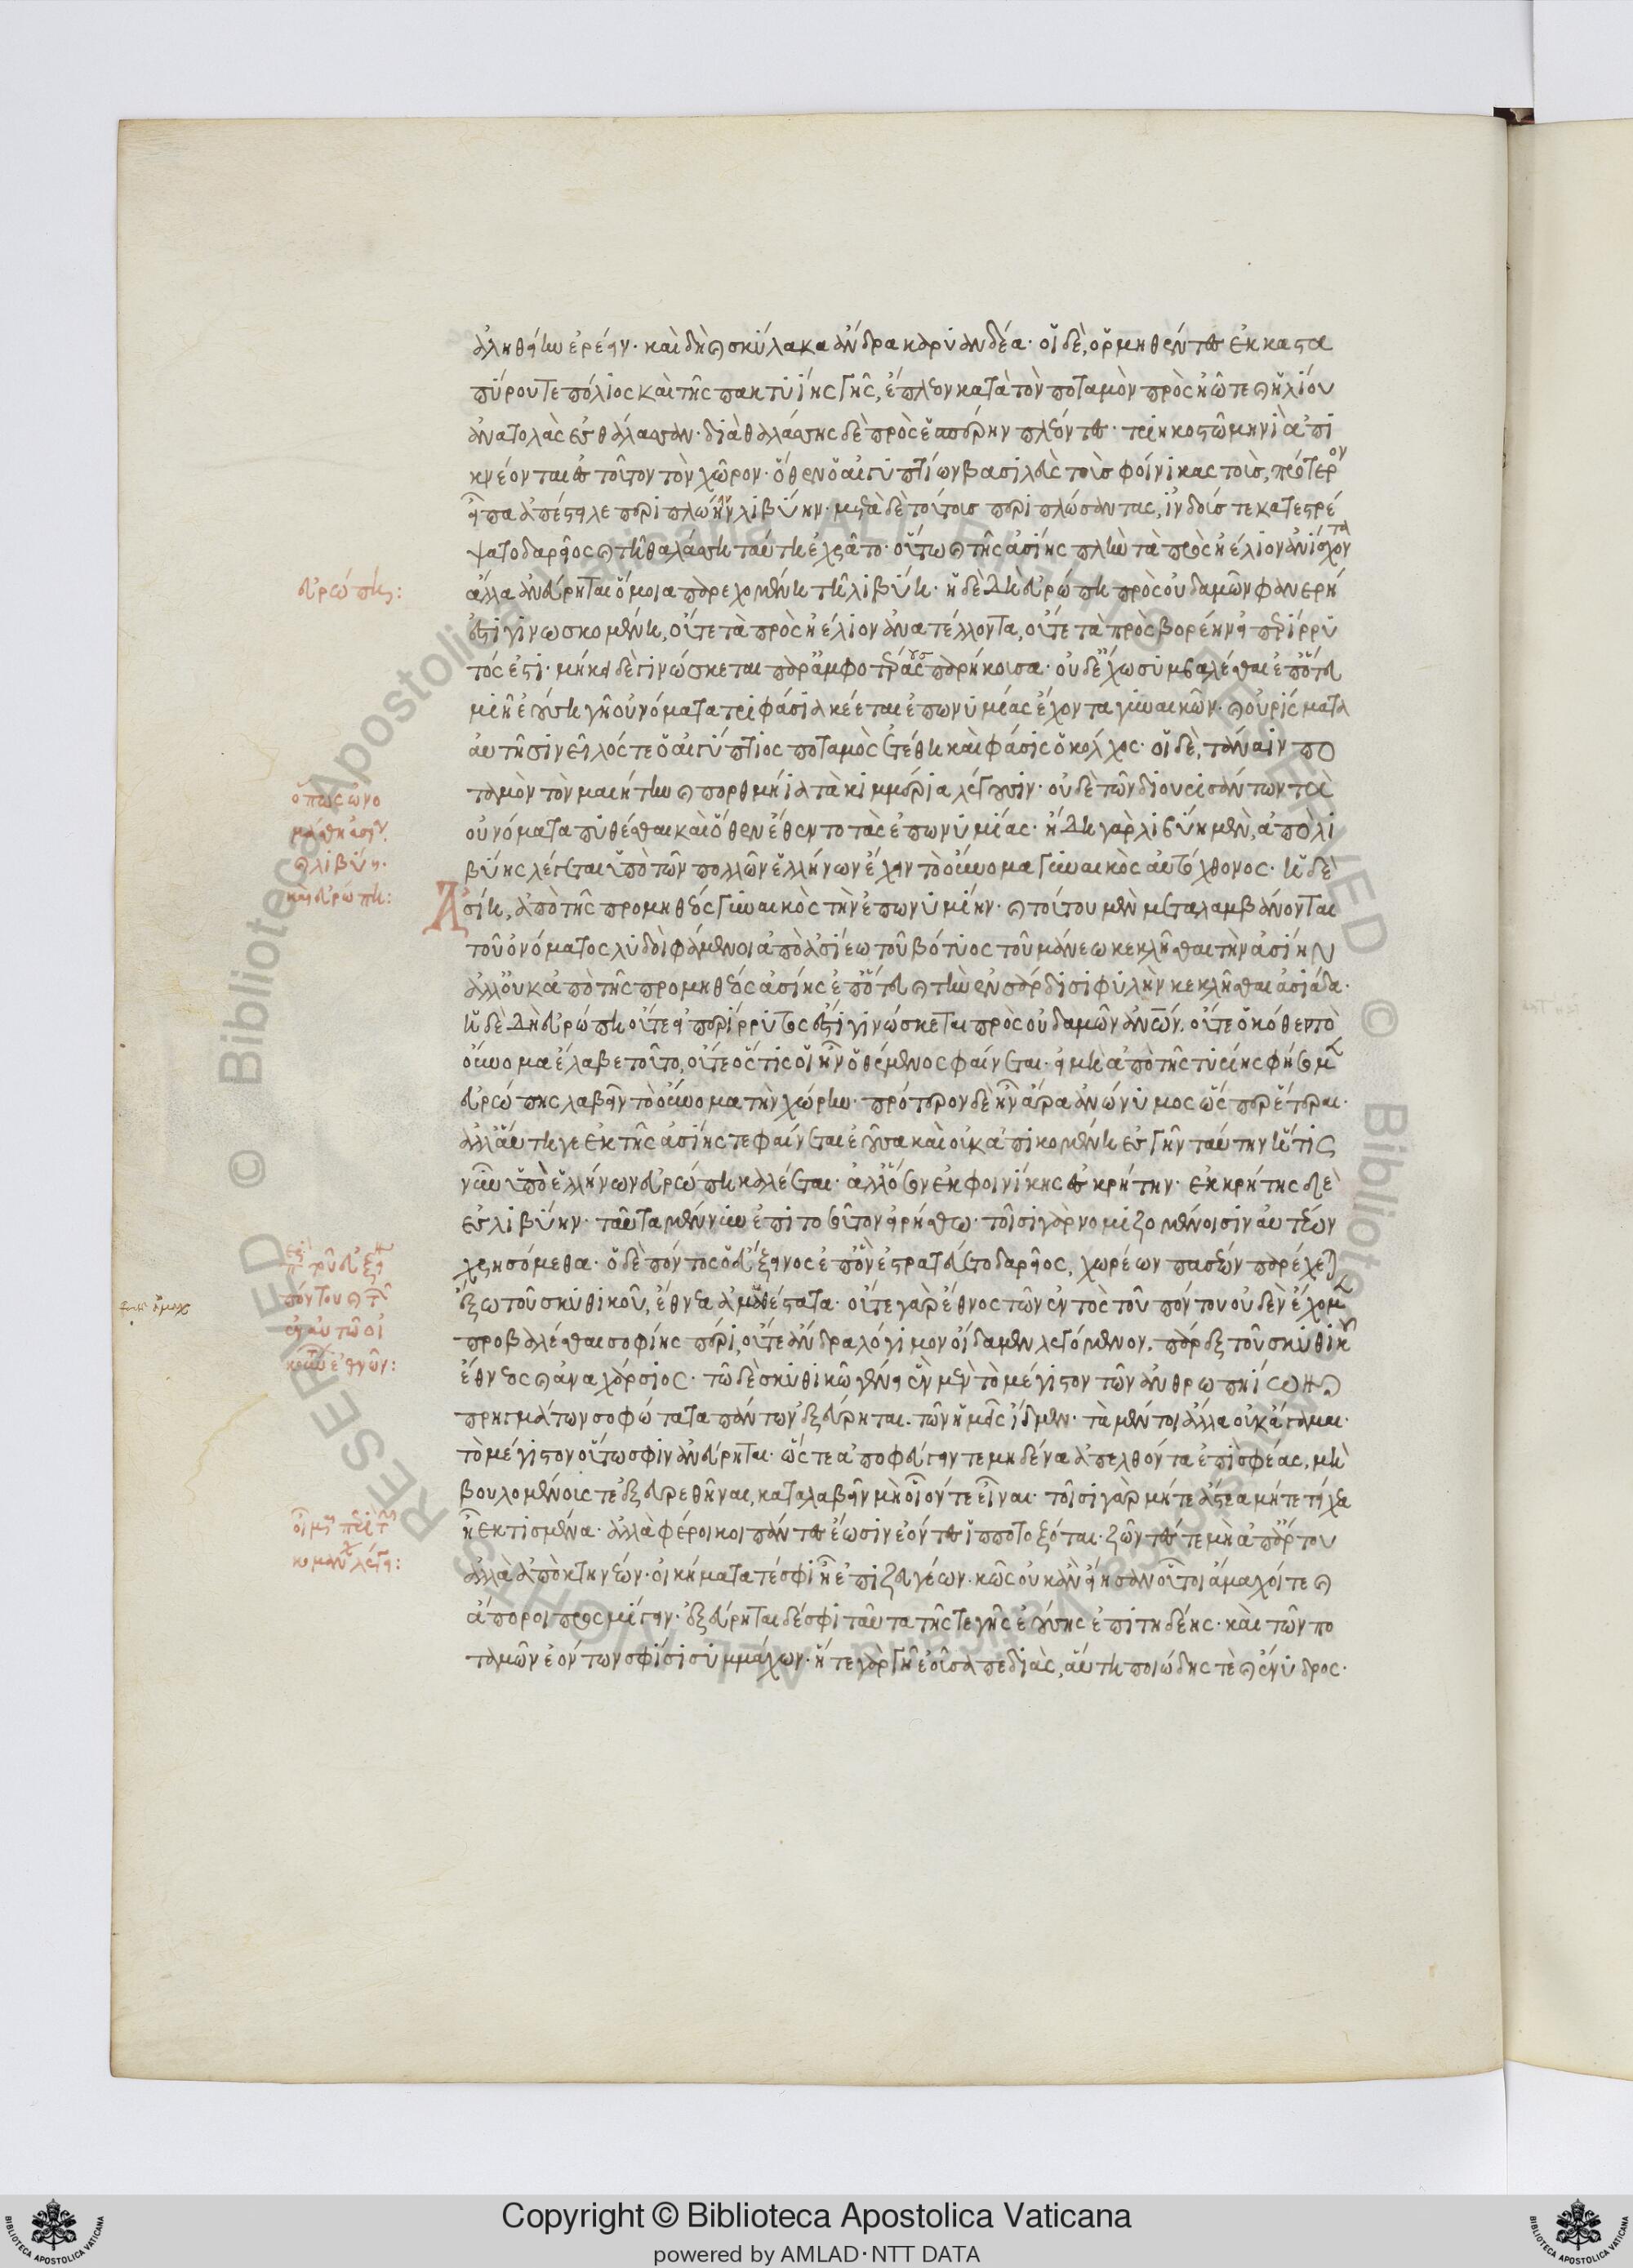 ἀληθείην ἐρέειν· καὶ δὴ καὶ σκύλακα ἄνδρα καρυανδέα· οἱ δὲ, ὁρμηθέντες ἐκ κασπα
πύρου τε πόλιος καὶ τῆς πακτυίης γῆς, ἔπλεον κατὰ τὸν ποταμὸν πρὸς ἠῶ τε καὶ ἡλίου
ἀνατολὰς ἐς θάλασσαν· διὰ θαλάσσης δὲ πρὸς ἑσπέρην πλέοντες· τριηκοστῶ μηνὶ ἀπι
κνέονται ἐς τοῦτον τὸν χῶρον· ὅθεν ὁ αἰγυπτίων βασιλεὺς τοὺς φοίνικας τοὺς, πρότερον
εἶπα ἀπέστειλε περιπλώειν λιβύην· μετὰ δὲ τούτους περιπλώσαντας, ἰνδούς τε κατεστρέ
ψατο δαρεῖος καὶ τῆ θαλάσση ταύτη ἐχρᾶτο· οὕτω καὶ τῆς ἀσίης πλὴν τὰ πρὸς ἠέλιον ἀνίσχοντα
ἄλλα ἀνεύρηται ὅμοια παρεχομένη τῆ λιβύη· ἡ δὲ δὴ εὐρώπη πρὸς οὐδαμῶν φανερή
εὐρώπης:
ἐστι γινωσκομένη, οὔτε τὰ πρὸς ἠέλιον ἀνατέλλοντα, οὔτε τὰ πρὸς βορέην εἰ περίρρυ
τός ἐστι· μήκει δὲ γινώσκεται παρ' ἀμφοτέρας παρήκουσα· οὐδ' ἔχω συμβαλέσθαι ἐπ' ὅτευ
μιῆ ἐούση γῆ οὐνόματα τριφάσια κέεται ἐπωνυμίας ἔχοντα γυναικῶν· καὶ οὐρίσματα
αὐτῆσι νεῖλός τε ὁ αἰγύπτιος ποταμὸς ἐτέθη καὶ φάσις ὁ κόλχος· οἱ δὲ, τάναιν πο
ταμὸν τὸν μαιήτην καὶ πορθμήια τὰ κιμμέρια λέγουσιν· οὐδὲ τῶν διουρισάντων τὰ
ὅπως ὠνο
μάσθη ἀσίη
καὶ λιβύη·
καὶ εὐρώπη:
οὐνόματα πυθέσθαι καὶ ὅθεν ἔθεντο τὰς ἐπωνυμίας· ἤδη γὰρ λιβύη μὲν, ἀπὸ λι
βύης λέγεται ὑπὸ τῶν πολλῶν ἑλλήνων ἔχειν τὸ οὔνομα γυναικὸς αὐτόχθονος· ἡ δὲ
Ἀσίη, ἀπὸ τῆς προμηθέος γυναικὸς τὴν ἐπωνυμίην· καὶ τούτου μὲν μεταλαμβάνονται
τοῦ ὀνόματος λυδοὶ φάμενοι ἀπὸ ἀσίεω τοῦ βότυος τοῦ μάνεω κεκλῆσθαι τὴν ἀσίην
ἀλλ' οὐκ ἀπὸ τῆς προμηθέος ἀσίης ἐπ' ὅτευ καὶ τὴν ἐν σάρδισι φυλὴν κεκλῆσθαι ἀσιάδα·
ἡ δὲ δὴ εὐρώπη οὔτε εἰ περίρρυτος ἐστι γινώσκεται πρὸς οὐδαμῶν ἀνθρώπων. οὔτε ὁκόθεν τὸ
οὔνομα ἔλαβε τοῦτο, οὔτε ὅστις οἱ ἦν ὁ θέμενος φαίνεται· εἰ μὴ ἀπὸ τῆς τυρίης φήσομεν
εὐρώπης λαβεῖν τὸ οὔνομα τὴν χώρην· πρότερον δὲ ἦν ἄρα ἀνώνυμος ὥσπερ ἕτεραι·
ἀλλ' αὕτη γε ἐκ τῆς ἀσίης τε φαίνεται ἐοῦσα καὶ οὐκ ἀπικομένη ἐς γῆν ταύτην ἥτις
νῦν ὑπὸ ἑλλήνων εὐρώπη καλέεται· ἀλλ' ὅσον ἐκ φοινίκης ἐς κρήτην· ἐκ κρήτης δὲ
ἐς λιβύην· ταῦτα μέν νυν ἐπὶ τοσοῦτον εἰρήσθω· τοῖσι γὰρ νομιζομένοισιν αὐτέων
χρησόμεθα· ὁ δὲ πόντος ὁ εὔξεινος ἐπ' ὃν ἐστρατεύετο δαρεῖος, χωρέων πασέων παρέχεται
ἔξω τοῦ σκυθικοῦ, ἔθνεα ἀμαθέστατα· οὔτε γὰρ ἔθνος τῶν ἐντὸς τοῦ πόντου οὐδὲν ἔχομεν
προβαλέσθαι σοφίης πέρι, οὔτε ἄνδρα λόγιμον οἴδαμεν λεγόμενον. πάρεξ τοῦ σκυθικοῦ
ἔθνεος καὶ ἀναχάρσιος· τῶ δὲ σκυθικῶ γένει ἓν μὲν τὸ μέγιστον τῶν ἀνθρωπηίων
πρηγμάτων σοφώτατα πάντων ἐξεύρηται. τῶν ἡμεῖς ἴδμεν· τὰ μέντοι ἄλλα οὐκ ἄγαμαι·
τὸ μέγιστον οὕτω σφιν ἀνεύρηται· ὥστε ἀποφυγεῖν τε μηδένα ἀπελθόντα ἐπὶ σφέας, μὴ
βουλομένοις τε ἐξευρεθῆναι, καταλαβεῖν μὴ οἷόν τε εἶναι· τοῖσι γὰρ μήτε ἄστεα μήτε τείχεα
ἦ ἐκτισμένα· ἀλλὰ φερέοικοι πάντες ἐωσιν ἐόντες ἱπποτοξόται· ζῶντές τε μὴ ἀπ' ἀρότου
ἀλλὰ ἀπὸ κτηνέων· οἰκήματα τέ σφι ἦ ἐπὶ ζευγέων· κῶς οὐκ ἂν εἴησαν οὗτοι ἄμαχοί τε καὶ
ἄποροι προσμίσγειν· ἐξεύρηται δέ σφι ταῦτα τῆς τε γῆς ἐούσης ἐπιτηδέης· καὶ τῶν πο
ταμῶν ἐόντων σφίσι συμμάχων· ἥ τε γὰρ γῆ ἐοῦσα πεδιὰς, αὕτη ποιώδης τὲ καὶ ἔνυδρος·
Copyright © Biblioteca Apostolica Vaticana
powered by AMLAD·NTT DATA